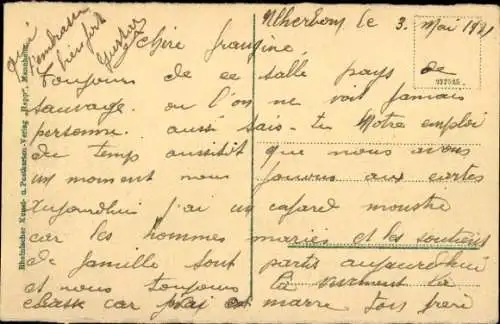 Alherbom le 3. Mai 1921
Chère frangine,
Toujours de ce salle pays de
sauvage. ou l'on ne voit jamais
personne. aussi sais-tu Notre emploi
du temps aussitôt que nous avons
un moment nous jouons aux cartes
aujourdhui j'ai un cafard monstre
car les hommes mariés et les soutiens
de famille sont partis aujourdhui
et nous toujours la
classe car j'ai marre ton frère
t'embrasse
bien fort
Gustave
Rheinischer Kunst- u. Postkarten-Verlag „Repp“, Mannheim